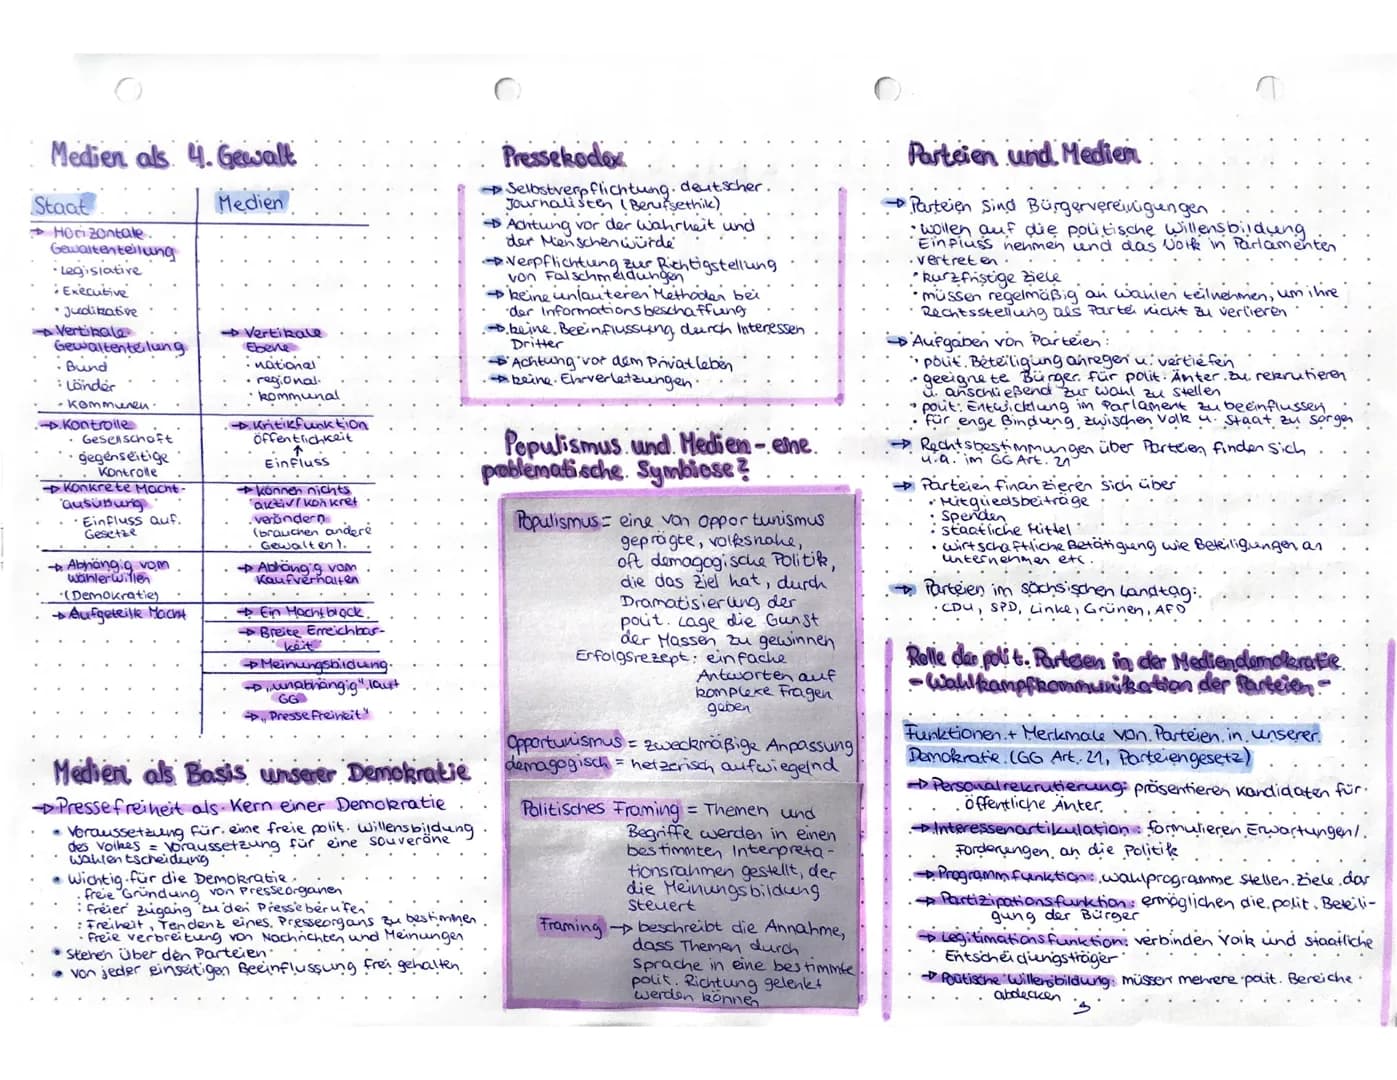 Medien als 4. Gewalt
Staat
→ Horizontale
Gewaltenteilung
· Legislative
· Exekutive
· Judikative
→ Vertikale
Gewaltenteilung
· Bund
· Länder
· Kommunen
→ Kontrolle
· Gesellschaft
· gegenseitige
Kontrolle
→ Konkrete Macht-
ausübung
· Einfluss auf
Gesetze
→ Abhängig vom
Wählerwillen
(Demokratie)
→ Aufgeteilte Macht
Medien
→ Vertikale
Ebene
· national
· regional
· kommunal
→ Kritikfunktion
Öffentlichkeit
↑
Einfluss
→ können nichts
aktiv/konkret
verändern
(brauchen andere
Gewalten)
→ Abhängig vom
Kaufverhalten
→ Ein Machtblock
→ Breite Erreichbar-
keit
→ Meinungsbildung
→ „unabhängig" laut
GG
→ „Pressefreiheit"
Medien als Basis unserer Demokratie
→ Pressefreiheit als Kern einer Demokratie
• Voraussetzung für eine freie polit. Willensbildung
des Volkes = Voraussetzung für eine souveräne
Wahlentscheidung
• Wichtig für die Demokratie
· freie Gründung von Presseorganen
· freier Zugang zu den Presseberufen
· Freiheit, Tendenz eines Presseorgans zu bestimmen
· freie Verbreitung von Nachrichten und Meinungen
• Stehen über den Parteien
• von jeder einseitigen Beeinflussung frei gehalten
Pressekodex
→ Selbstverpflichtung deutscher
Journalisten (Berufsethik)
→ Achtung vor der Wahrheit und
der Menschenwürde
→ Verpflichtung zur Richtigstellung
von Falschmeldungen
→ keine unlauteren Methoden bei
der Informationsbeschaffung
→ keine Beeinflussung durch Interessen
Dritter
→ Achtung vor dem Privatleben
→ keine Ehrverletzungen
Populismus und Medien - eine
problematische Symbiose?
Populismus = eine von Opportunismus
geprägte, volksnahe,
oft demagogische Politik,
die das Ziel hat, durch
Dramatisierung der
polit. Lage die Gunst
der Massen zu gewinnen
Erfolgsrezept: einfache
Antworten auf
komplexe Fragen
geben
Opportunismus = zweckmäßige Anpassung
demagogisch = hetzerisch aufwiegelnd
Politisches Framing = Themen und
Begriffe werden in einen
bestimmten Interpreta-
tionsrahmen gestellt, der
die Meinungsbildung
steuert
Framing → beschreibt die Annahme,
dass Themen durch
Sprache in eine bestimmte
polit. Richtung gelenkt
werden können
Parteien und Medien
→ Parteien sind Bürgervereinigungen
· wollen auf die politische Willensbildung
Einfluss nehmen und das Volk in Parlamenten
vertreten
· kurzfristige Ziele
· müssen regelmäßig an Wahlen teilnehmen, um ihre
Rechtsstellung als Partei nicht zu verlieren
→ Aufgaben von Parteien:
· polit. Beteiligung anregen u. vertiefen
· geeignete Bürger für polit. Änter zu rekrutieren
u. anschließend zur Wahl zu stellen
· polit. Entwicklung im Parlament zu beeinflussen
· für enge Bindung zwischen Volk u. Staat zu sorgen
→ Rechtsbestimmungen über Parteien finden sich
u.a. im GG Art. 21
→ Parteien finanzieren sich über
· Mitgliedsbeiträge
· Spenden
· staatliche Mittel
· wirtschaftliche Betätigung wie Beteiligungen an
Unternehmen etc.
→ Parteien im sächsischen Landtag:
· CDU, SPD, Linke, Grünen, AFD
Rolle der polit. Parteien in der Mediendemokratie
- Wahlkampfkommunikation der Parteien -
Funktionen + Merkmale von Parteien in unserer
Demokratie (GG Art. 21, Parteiengesetz)
→ Personalrekrutierung: präsentieren Kandidaten für
öffentliche Änter
→ Interessenartikulation: formulieren Erwartungen/
Forderungen an die Politik
→ Programmfunktion: Wahlprogramme stellen Ziele dar
→ Partizipationsfunktion: ermöglichen die polit. Beteili-
gung der Bürger
→ Legitimationsfunktion: verbinden Volk und staatliche
Entscheidungsträger
→ Politische Willensbildung: müssen mehrere polit. Bereiche
abdecken